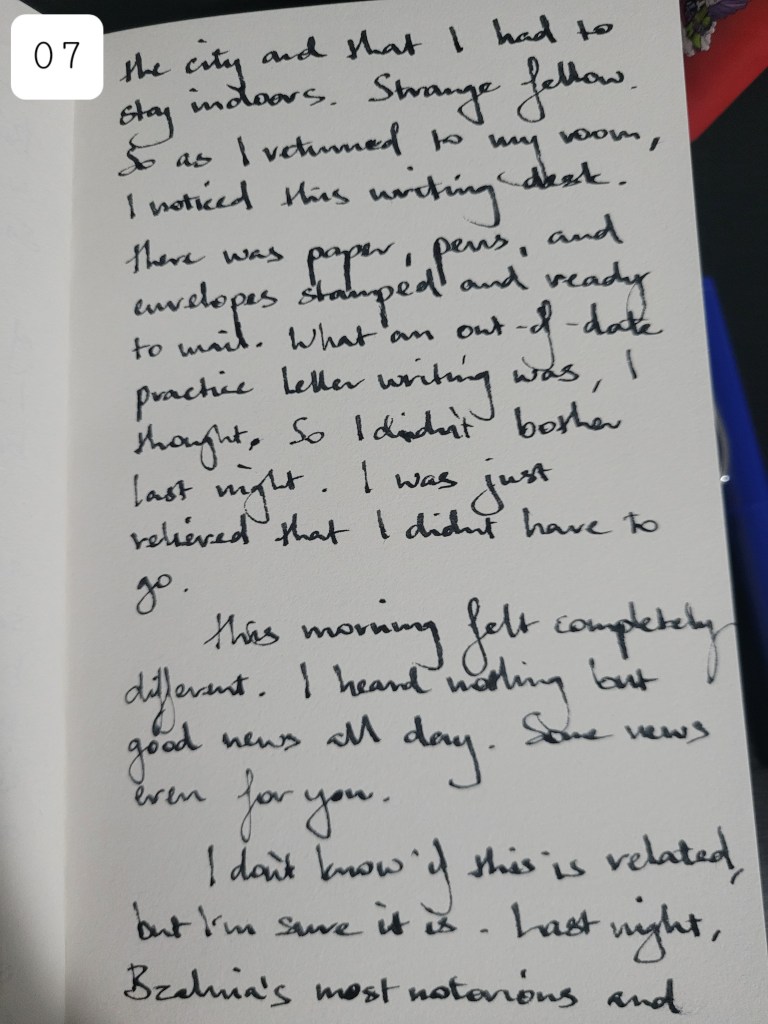 07
the city and that I had to
stay indoors. Strange fellow.
So as I returned to my room,
I noticed this writing desk.
there was paper, pens, and
envelopes stamped and ready
to mail. What an out-of-date
practice letter writing was, I
thought. So I didn't bother
last night. I was just
relieved that I didn't have to
go.
this morning felt completely
different. I heard nothing but
good news all day. Some news
even for you.
I don't know if this is related,
but I'm sure it is. Last night,
most notorious and